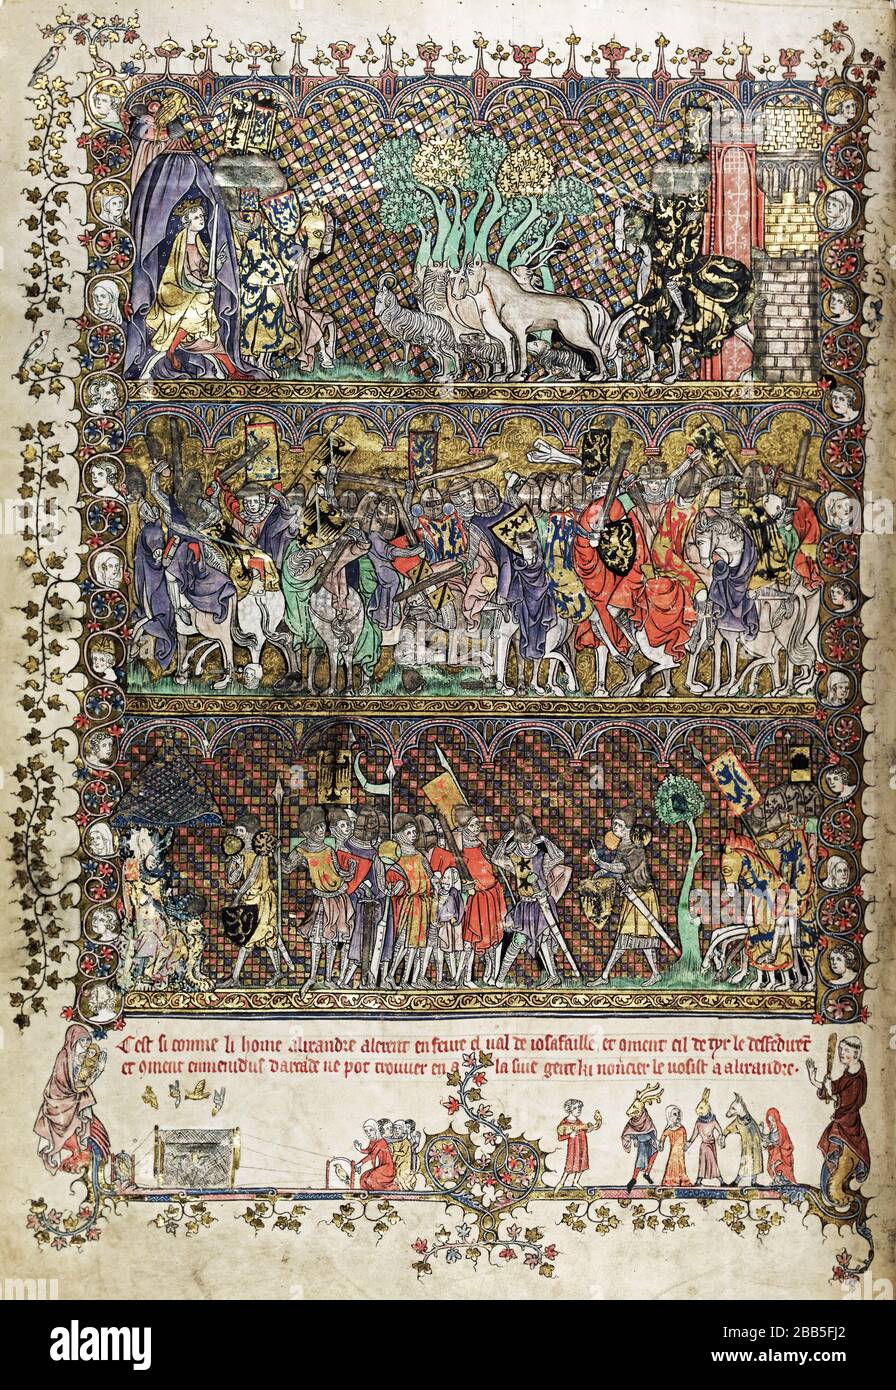 C'est si comme li home alixandre alerent en feure el ual de iosafaille. et oment cil de tyr le desfedirent
et oment emmenidus darcade ne pot trouuer en a la siue gent ki noncier le vosist a alixandre.
alamy
Image ID: 2BB5FJ2
www.alamy.com